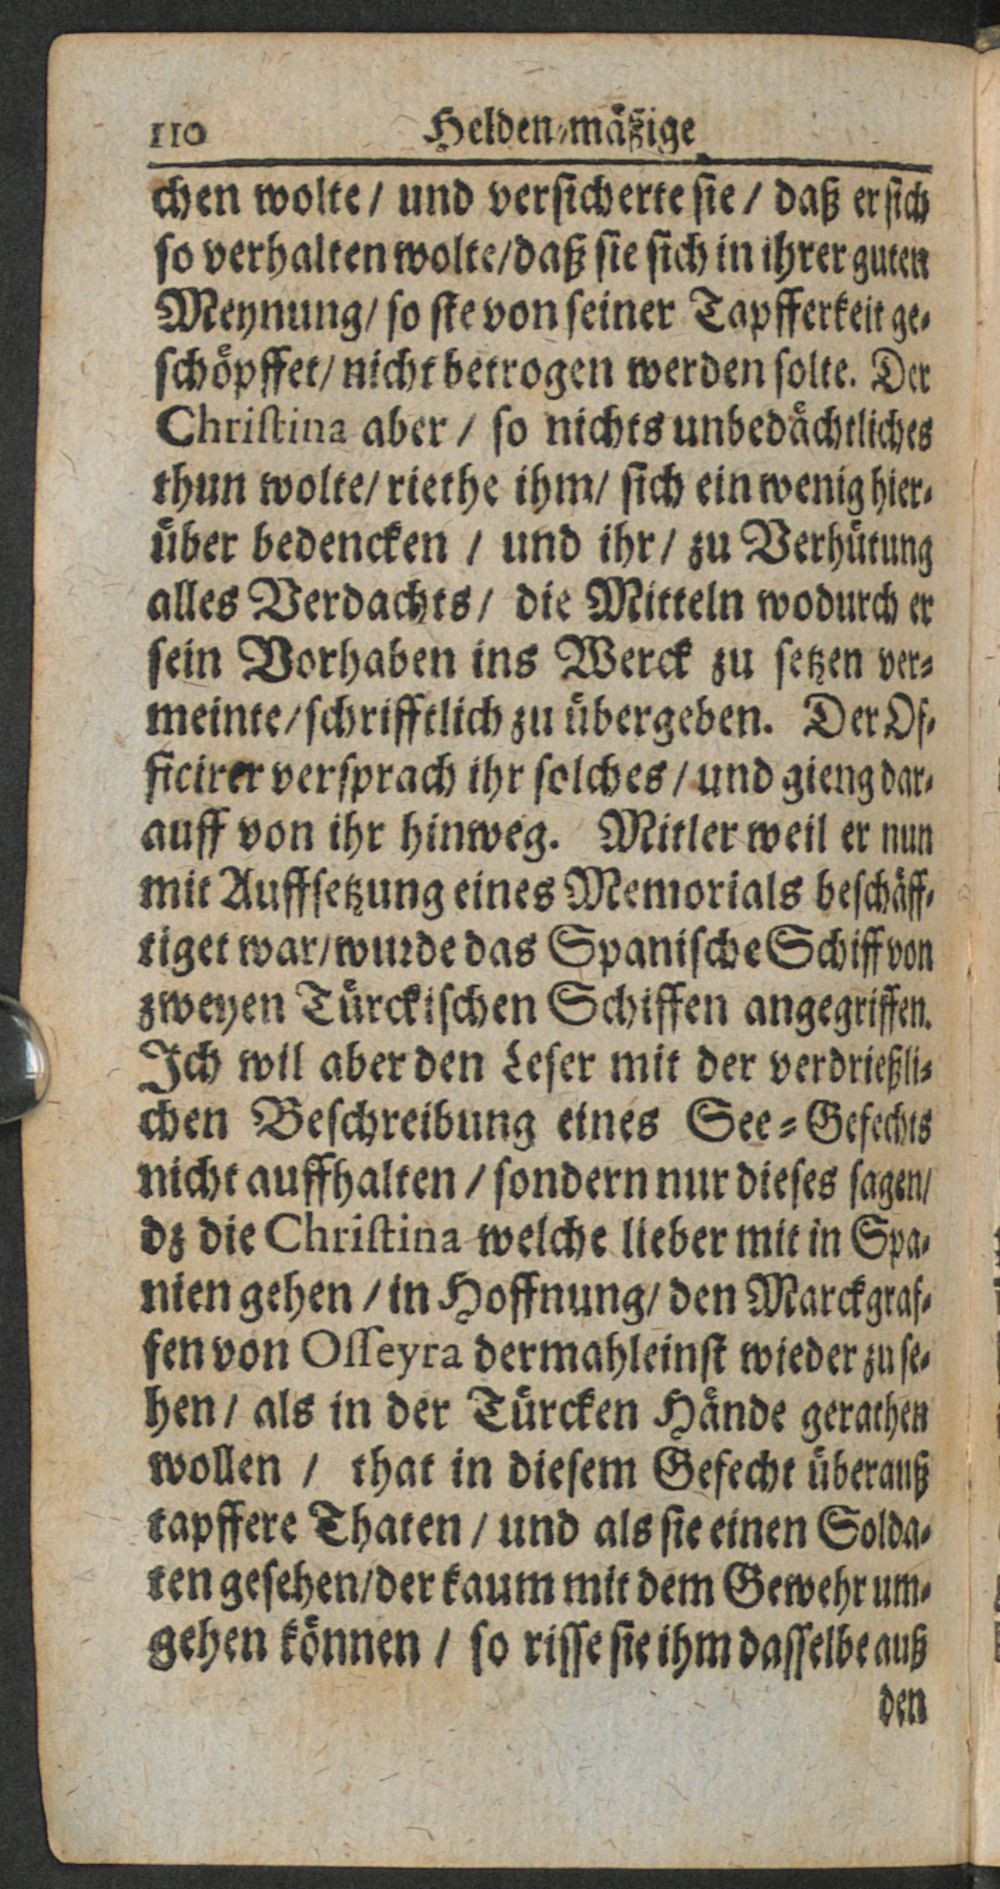 110 Helden-mäßige
chen wolte / und versicherte sie / daß er sich
so verhalten wolte / daß sie sich in ihrer guten
Meynung / so sie von seiner Tapfferkeit ge-
schöpffet / nicht betrogen werden solte. Der
Christina aber / so nichts unbedächtliches
thun wolte / riethe ihm / sich ein wenig hier-
über bedencken / und ihr / zu Verhütung
alles Verdachts / die Mitteln wodurch er
sein Vorhaben ins Werck zu setzen ver-
meinte / schrifftlich zu übergeben. Der Of-
ficirer versprach ihr solches / und gieng dar-
auff von ihr hinweg. Mitler weil er nun
mit Auffsetzung eines Memorials beschäff-
tiget war / wurde das Spanische Schiff von
zweyen Türckischen Schiffen angegriffen.
Ich wil aber den Leser mit der verdrießli-
chen Beschreibung eines See-Gefechts
nicht auffhalten / sondern nur dieses sagen /
dz die Christina welche lieber mit in Spa-
nien gehen / in Hoffnung / den Marckgraf-
fen von Osseyra dermahleinst wieder zu se-
hen / als in der Türcken Hände gerathen
wollen / that in diesem Gefecht überauß
tapffere Thaten / und als sie einen Solda-
ten gesehen / der kaum mit dem Gewehr um-
gehen können / so risse sie ihm dasselbe auß
den